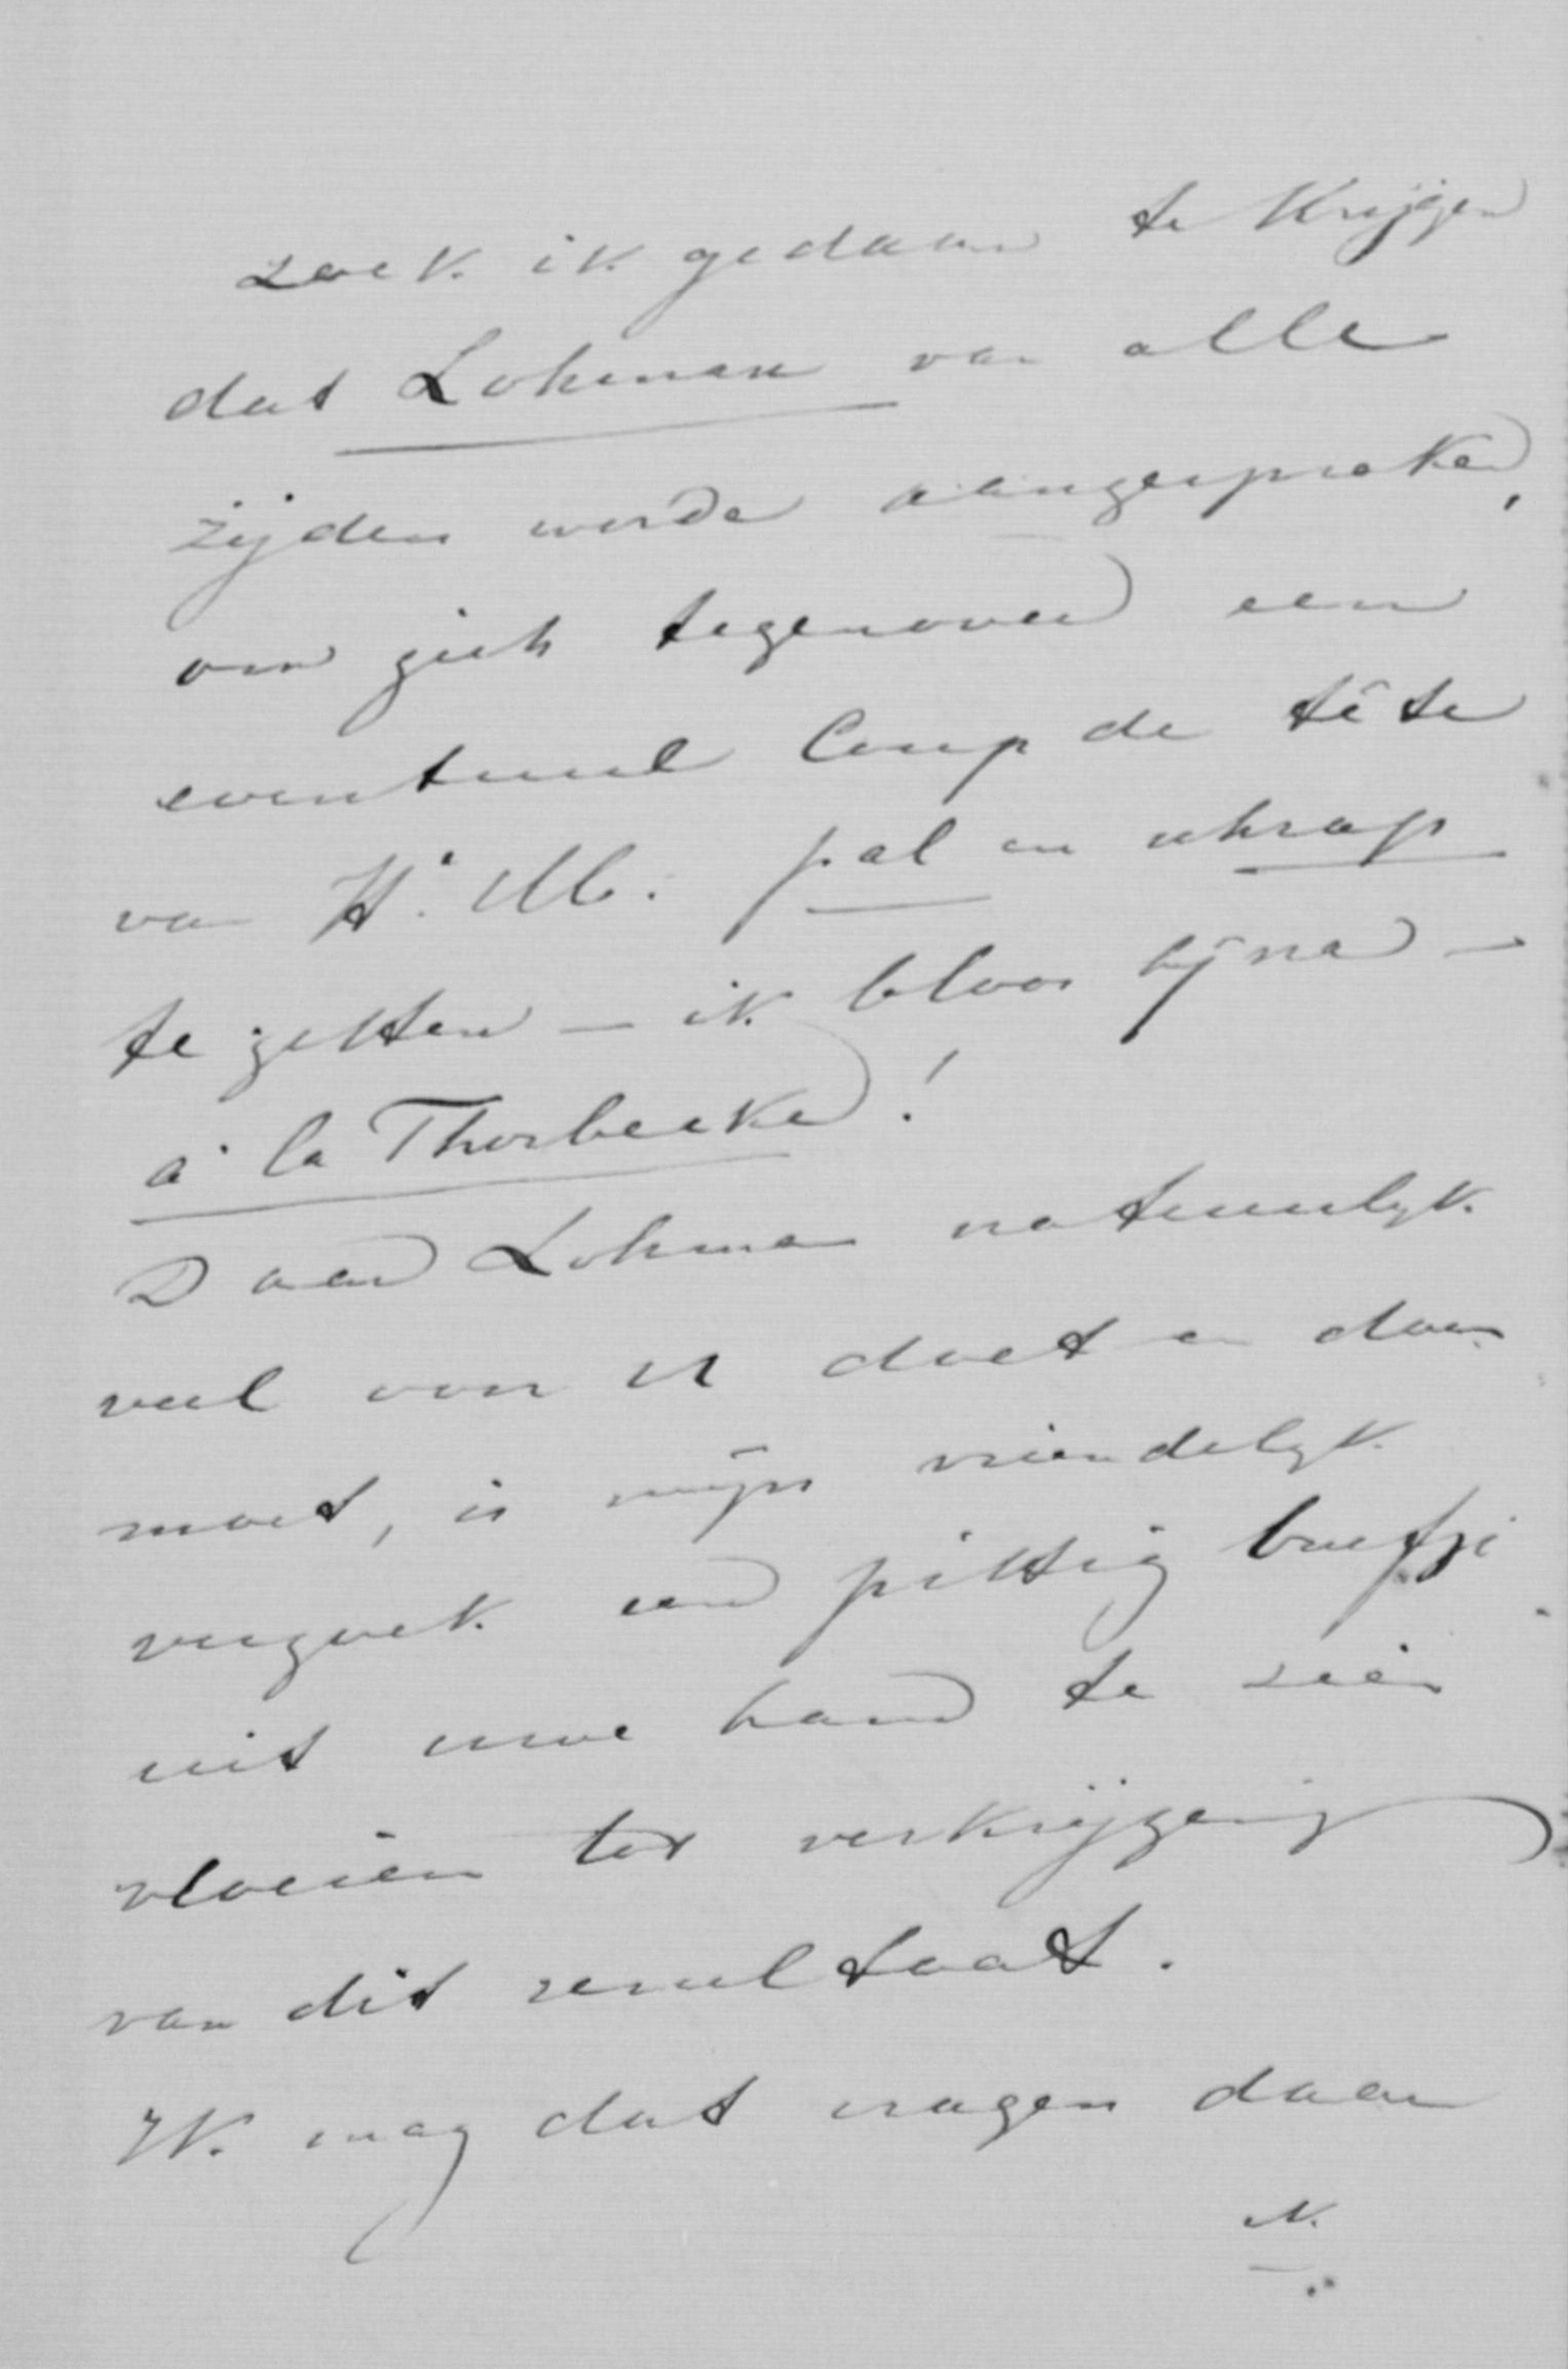 zoek ik gedaan te krijgen
dat Lohman van alle
zijden worde aangesproken,
om zich tegenover een
eventueel Coup de tête
van H. M. pal en schrap
te zetten – ik bloos bijna –
à la Thorbecke!
Daar Lohman natuurlijk
veel voor U doet en doen
moet, is mijn vriendelijk
verzoek een pittig briefje
uit uwe hand te zien
vloeien ter verkrijging
van dit resultaat.
Ik mag dat vragen daar
ik